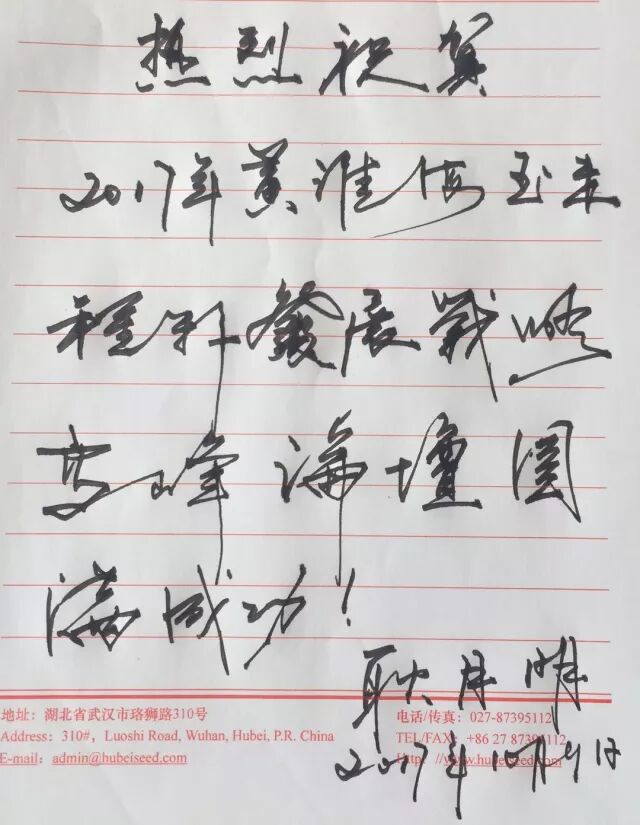 热烈祝贺
2017年黄淮海玉米
種業發展戰略
高峰論壇圓
滿成功！
耿月明
2017年10月9日
地址：湖北省武汉市珞狮路310号
电话/传真：027-87395112
Address: 310#, Luoshi Road, Wuhan, Hubei, P.R. China
TEL/FAX: +86 27 87395112
E-mail: admin@hubeiseed.com
Http: //www.hubeiseed.com